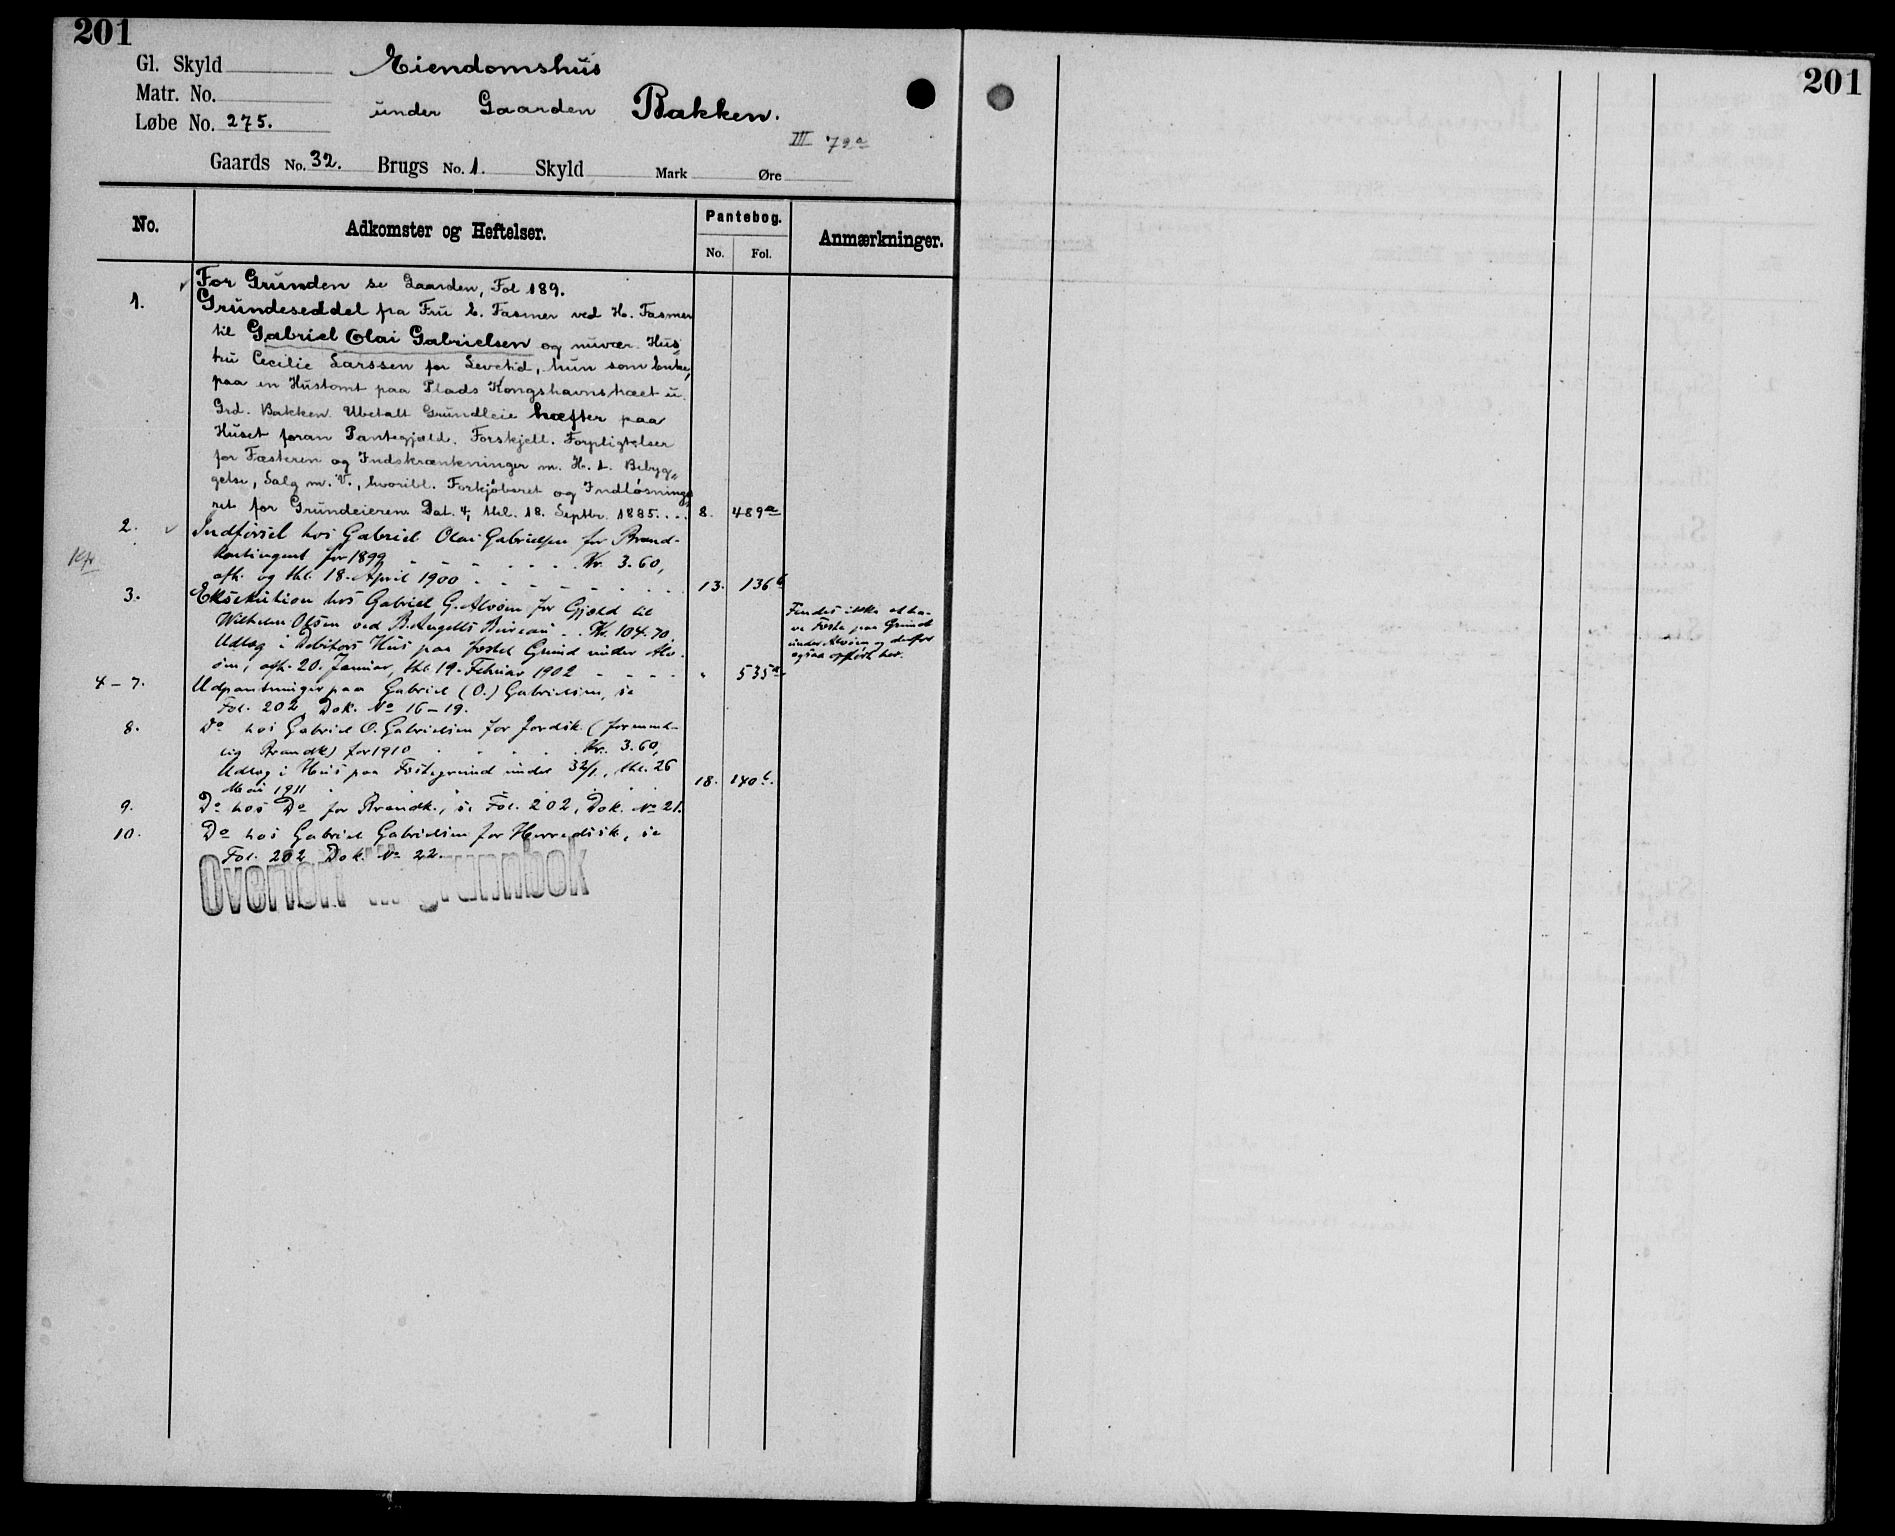 201
201
Gl. Skyld
Eiendomshus
Matr. No.
under Gaarden Bakken.
Løbe No. 275.
III 72a
Gaards No. 32. Brugs No. 1. Skyld Mark Øre
No. Adkomster og Heftelser. Pantebog. Anmærkninger.
No. Fol.
For Grunden se Gaarden, Fol 189.
1. Grundeseddel fra Fru E. Fasmer ved H. Fasmer
til Gabriel Olai Gabrielsen og nuvær. Hus-
tru Cecilie Larssen for Levetid, hun som Enke,
paa en Hustomt paa Plads Kongshavnstræet u.
Grd. Bakken. Ubetalt Grundleie hæfter paa
Huset foran Pantegjæld. Forskjell. Forpligtelser
for Fæsteren og Indskrænkninger m. H. t. Bebyg-
gelse, Salg m. V., hvoribl. Forkjøbsret og Indløsnings-
ret for Grundeieren. Dat. 4, thl. 18. Septbr. 1885. . . 8. 489a
2. Indførsel hos Gabriel Olai Gabrielsen for Brand-
kontingent for 1899 . . . . . Kr. 3.60,
Kfr
afh. og thl. 18. April 1900 - - - - - - 13. 136b
3. Eksekution hos Gabriel G. Alvøen for Gjæld til
Wilhelm Olsen ved B. Angells Bureau . . Kr. 104.70.
Udlæg i Debitors Hus paa fæstet Grund under Alv-
øen, afh. 20. Januar, thl. 19. Februar 1902 - - - - " 535a
Findes ikke at ha-
ve Fæste paa Grund
under Alvøen og derfor
ogsaa opført her.
4-7. Udpantninger paa Gabriel (O.) Gabrielsen, se
Fol. 202, Dok. No 16-19.
8. Do hos Gabriel O. Gabrielsen for Jordsk. (forment-
lig Brandk) for 1910 . . . . Kr. 3.60,
Udlæg i Hus paa Fæstegrund under 32/1, thl. 26
Mai 1911 . . . . . . 18. 140b.
9. Do hos Do for Brandk., se Fol. 202, Dok. No 21.
10. Do hos Gabriel Gabrielsen for Herredssk, se
Fol. 202 Dok. No 22.
Overført til grunnbok